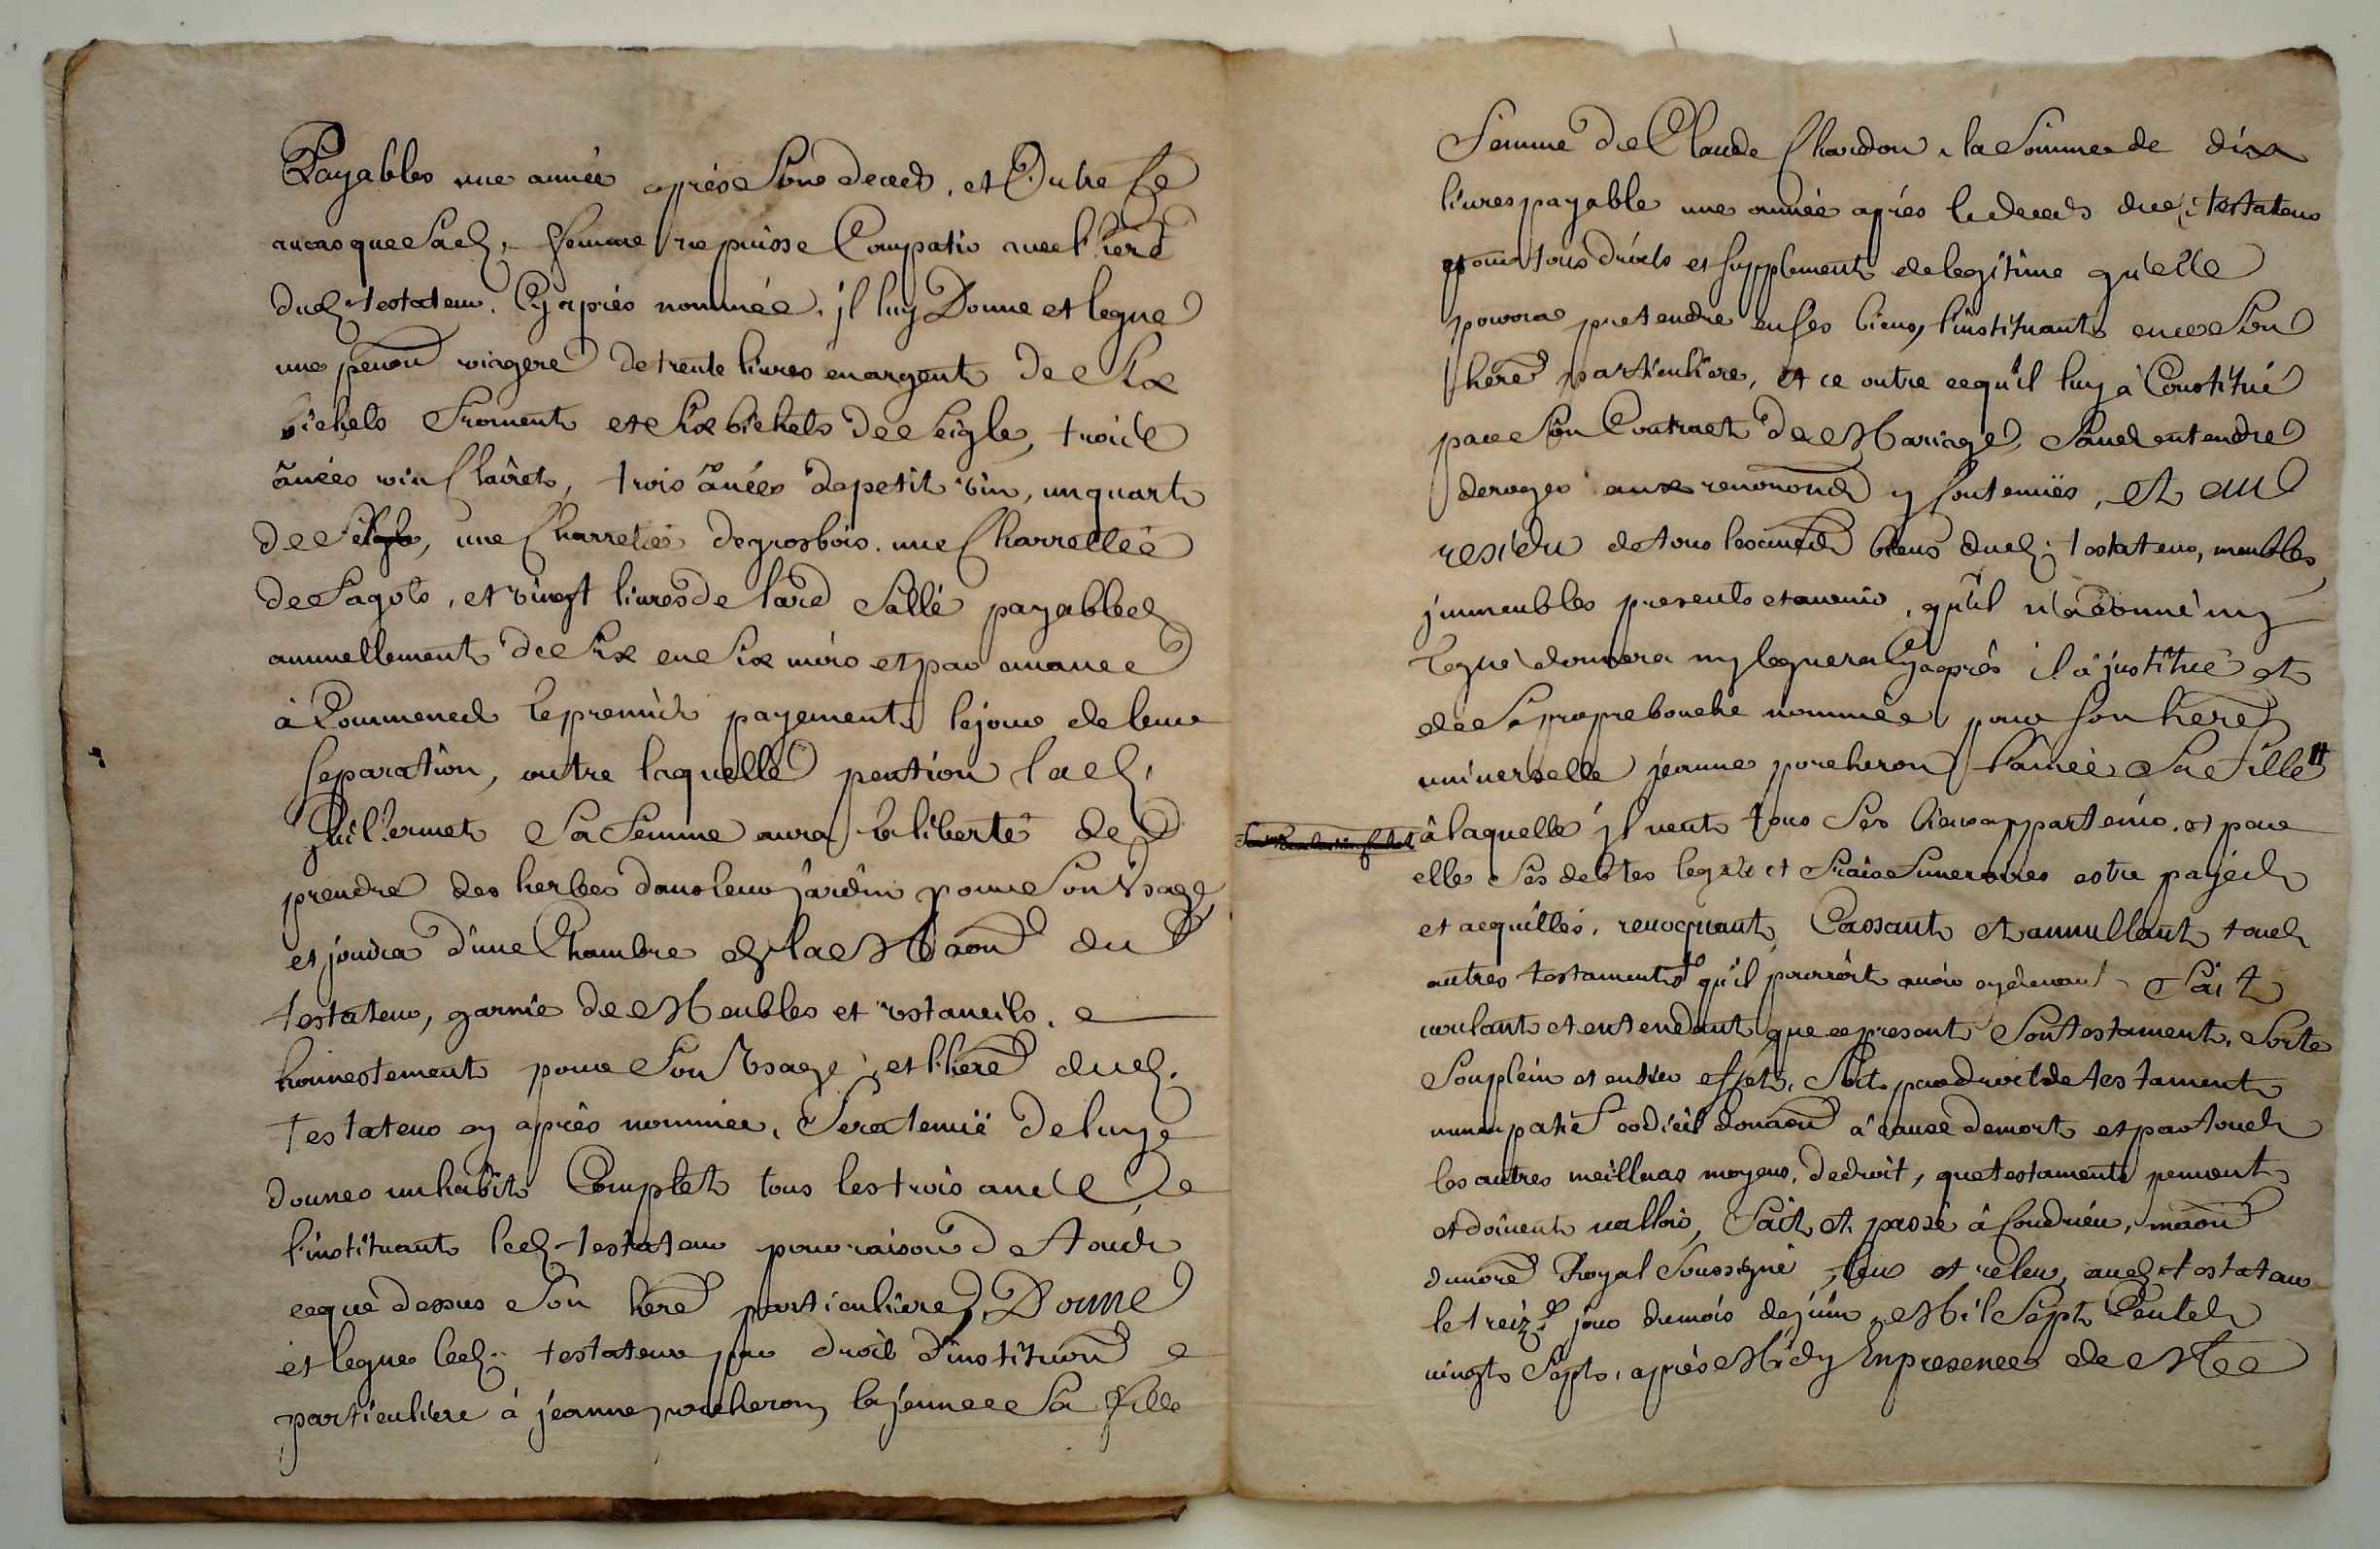 Payables une année après Son deceds, et Outre Ce
au cas que Sad. femme ne puisse Compatir avec l'herē
dud. testateur Cy après nommée, jl luy Donne et legue
une penōn viagere de trente livres en argent de Six
bichets froment et Six bichets de Seigle, trois
ânées vin Clairet, trois ânées de petit vin, un quart
de, une Charretée de gros bois, une Charrettée
de fagots, et vingt livres de lard Sallé payables
annuellement de Six en Six mois et par avance
à Commencer le premier payement le jour de leur
Separation, outre laquelle pention lad.
Guillermet Sa femme aura la liberté de
prendre des herbes dans leur jardin pour Son Vsage,
et jouira d'une Chambre de la Maōn du
testateur, garnie de Meubles et vstancils,
honnestement pour Son Vsage, et l'herē dud.
testateur cy après nommée, Sera tenuë de luy
donner un habit Complet tous les trois ans
l'instituant led. testateur pour raison de tout
ce que dessus Son herē particuliere, Donne
et legue led. testateur par droit d'institution
particuliere à jeanne porcheron la jeune Sa fille
femme de Claude Chardon, la Somme de dix
livres payable une année après le deceds dud. testateur
pour tous droits et supplement de legitime qu'elle
pourra pretendre en ses biens, l'instituant en ce Son
herē particuliere, et ce outre ce qu'il luy à Constitué
par Son Contract de Mariage, Sans entendre
deroger aux renononcē y contenuës, et au
residu de tous les biens dud. testateur, meubles,
jmmeubles presents et avenir, qu'il n'a donné ny
legué donnera ny leguera Cy après il à justitué et
de Sa propre bouche nommée pour son herē
universelle jeanne porcheron l'ainée Sa fille
à laquelle jl veut tous Ses biens appartenir, et par
elle Ses debtes legats et frais funeraires estre payés
et acquittés, revocquant, Cassant et annullant tous
autres testaments qu'il pourroit avoir cy devant fait
voulant et entendant que ce present Son testament, Sorte
Son plein et entier effet, Soit par droit de testament
nuncupatif codicil donaōn à cause de mort et par tous
les autres meilleurs moyens, de droit, que testaments peuvent
et doivent valloir, fait et passé à Condrieu, maōn
du norē Royal Soussigné, leu et releu, aud. testateur
le treize jour du mois de juin, Mil Sept Cents
vingt Sept, après Midy En presence de Me